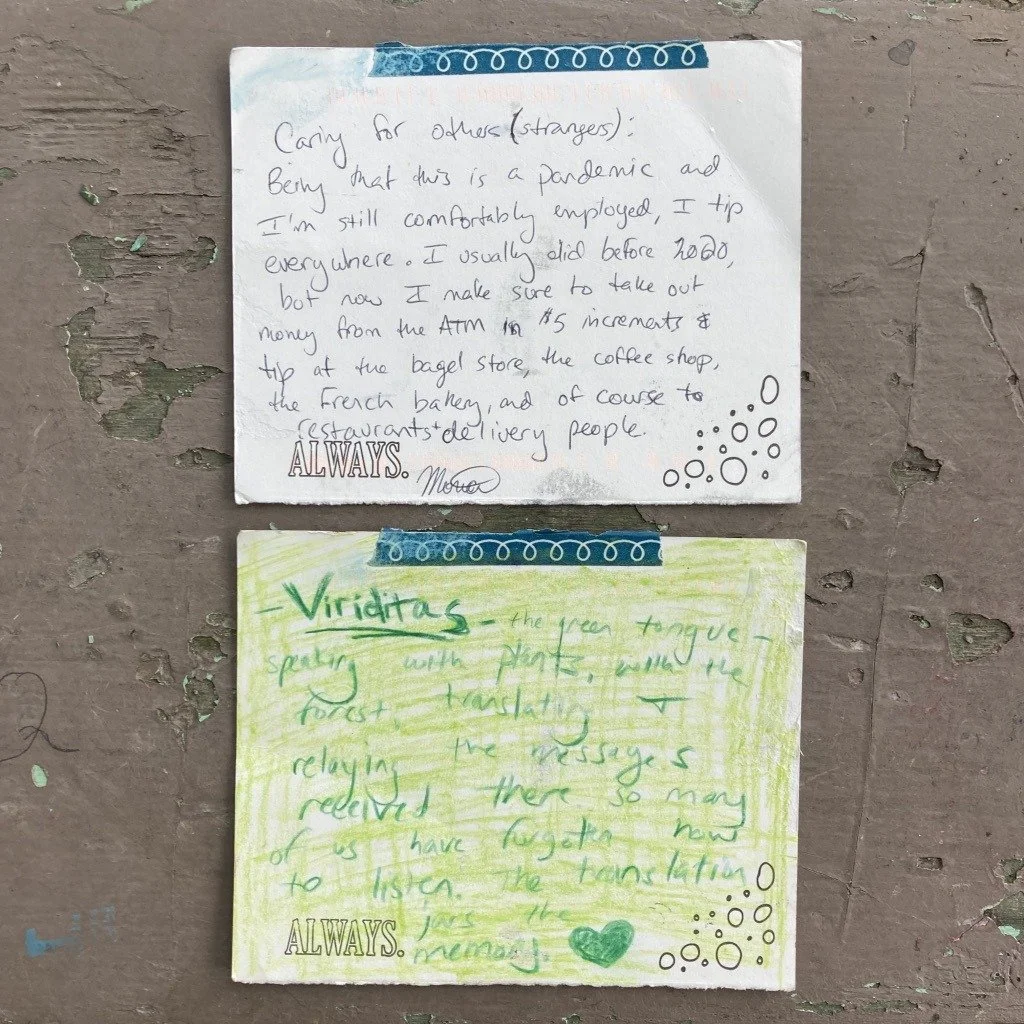 Caring for others (strangers):
Being that this is a pandemic and
I'm still comfortably employed, I tip
everywhere. I usually did before 2020,
but now I make sure to take out
money from the ATM in $5 increments &
tip at the bagel store, the coffee shop,
the French bakery, and of course to
restaurants + delivery people.
ALWAYS.
- Viriditas - the green tongue -
speaking with plants, with the
forest, translating +
relaying the messages
received there so many
of us have forgotten how
to listen. The translation
jars the
ALWAYS. memory.